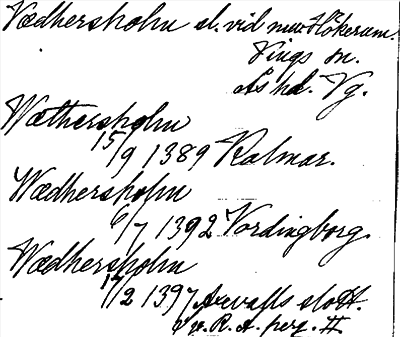 Vædhersholm sl. vid nuv. Hökerum.
Vings sn.
Ås hd. Vg.
Wæthersholm
15/9 1389 Kalmar.
Wædhersholm
6/7 1392 Nordingborg.
Wædhersholm
14/2 1397 Axevalls slott.
R. A. perg. II.